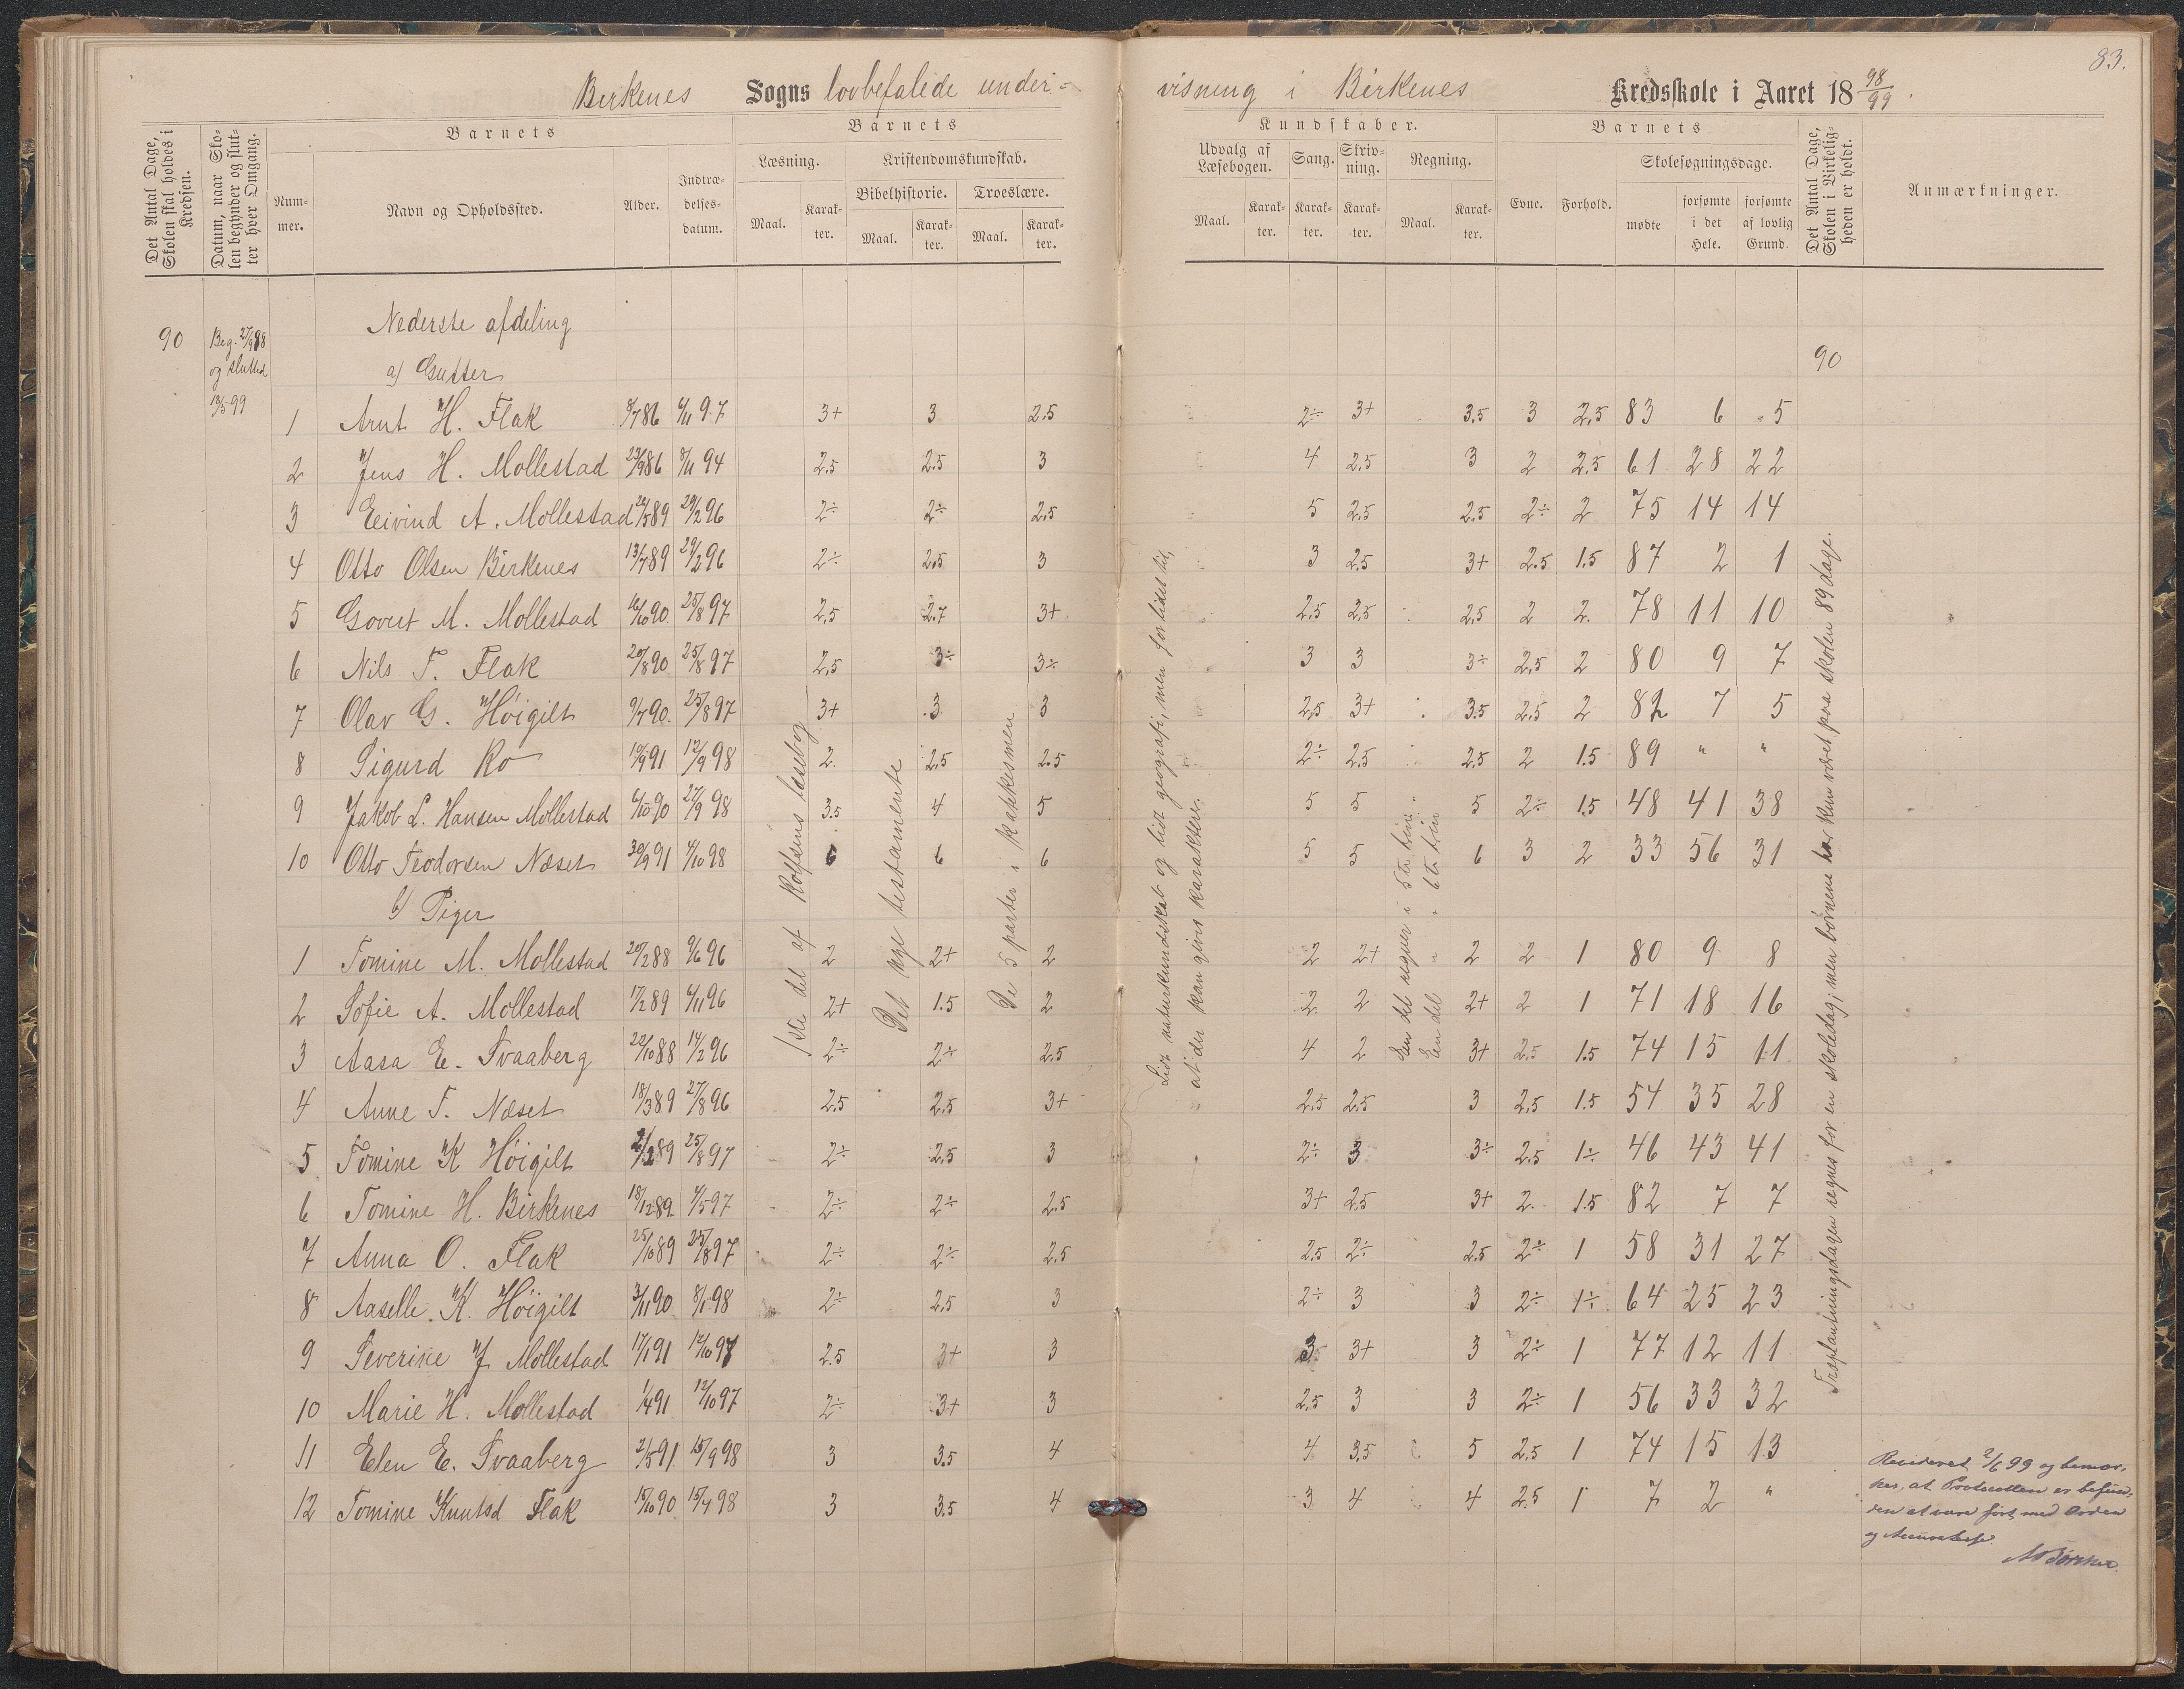 83.
Birkenes Sogns lovbefalede under-visning i Birkenes Kredsskole i Aaret 18 98/99.
Det Antal Dage, Skolen skal holdes i Kredsen.
Datum, naar Skolen begynder og slutter hver Omgang.
Barnets
Nummer.
Navn og Opholdssted.
Alder.
Indtrædelsesdatum.
Barnets
Læsning.
Maal. Karakter.
Kristendomskundskab.
Bibelhistorie.
Maal. Karakter.
Troeslære.
Maal. Karakter.
Kundskaber.
Udvalg af Læsebogen.
Maal. Karakter.
Sang.
Karakter.
Skrivning.
Karakter.
Regning.
Maal. Karakter.
Barnets
Evne. Forhold.
Skolesøgningsdage.
mødte
forsømte i det Hele.
forsømte af lovlig Grund.
Det Antal Dage, Skolen i Virkeligheden er holdt.
Anmærkninger.
90 Beg. 27/9 98 og sluttet 13/5 99
Nederste afdeling
90
a) Gutter
1 Arnt H. Flak 8/7 86 4/11 97 3+ 3 2.5 2÷ 3+ 3.5 3 2.5 83 6 5
2 Jens H. Mollestad 23/9 86 8/11 94 2.5 2.5 3 4 2.5 3 2 2.5 61 28 22
3 Eivind A. Mollestad 24/5 89 29/2 96 2÷ 2÷ 2.5 5 2.5 2.5 2÷ 2 75 14 14
4 Otto Olsen Birkenes 13/7 89 29/2 96 2÷ 2.5 3 3 2.5 3+ 2.5 1.5 87 2 1
5 Govert M. Mollestad 16/10 90 25/8 97 2.5 2.7 3+ 2.5 2.5 2.5 2 2 78 11 10
6 Nils T. Flak 20/8 90 25/8 97 2.5 3÷ 3÷ 3 3 3÷ 2.5 2 80 9 7
7 Olav G. Høigilt 9/7 90 25/8 97 3+ 3 3 2.5 3+ 3.5 2.5 2 82 7 5
8 Sigurd Ro 10/9 91 12/9 98 2 2.5 2.5 2÷ 2.5 2.5 2 1.5 89 " "
9 Jakob L. Hansen Mollestad 6/10 90 27/9 98 3.5 4 5 5 5 5 2÷ 1.5 48 41 38
10 Otto Teodorsen Næset 30/9 91 4/10 98 6 6 6 5 5 6 3 2 33 56 31
b) Piger
1 Tomine M. Mollestad 20/2 88 9/6 96 2 2+ 2 2 2+ 2 2 1 80 9 8
2 Sofie A. Mollestad 17/2 89 4/11 96 2+ 1.5 2 2 2 2+ 2 1 71 18 16
3 Aasa E. Svaaberg 22/10 88 14/2 96 2÷ 2÷ 2.5 4 2 3+ 2.5 1.5 74 15 11
4 Anne T. Næset 18/3 89 27/8 96 2.5 2.5 3+ 2.5 2.5 3 2.5 1.5 54 35 28
5 Tomine K Høigilt 89 25/8 97 2÷ 2.5 3 2÷ 3 3÷ 2.5 1÷ 46 43 41
6 Tomine H. Birkenes 18/12 89 4/5 97 2÷ 2÷ 2.5 3+ 2.5 3+ 2 1.5 82 7 7
7 Anna O. Flak 25/10 89 25/8 97 2÷ 2÷ 2.5 2.5 2÷ 2.5 2÷ 1 58 31 27
8 Aaselle K. Høigilt 3/11 90 8/1 98 2÷ 2.5 3 2÷ 3 3 2÷ 1÷ 64 25 23
9 Severine J Mollestad 17/1 91 12/10 97 2.5 3+ 3 3 3+ 3 2÷ 1 77 12 11
10 Marie H. Mollestad 1/4 91 12/10 97 2÷ 3+ 3 2.5 3 3 2÷ 1 56 33 32
11 Elen E. Svaaberg 2/5 91 15/9 98 3 3.5 4 4 3.5 5 2.5 1 74 15 13
12 Tomine Knutsd Flak 15/10 90 15/4 98 3 3.5 4 3 4 4 2.5 1 7 2 "
1ste del af Rolfsens læsebog
Det nye testamente
De 5 parter i katekismen
Lidt naturkundskab og lidt geografi, men for lidet til,
at der kan gives karakter.
En del regner i 5te trin.
En del " " 6te trin
Træplantningsdagen regnes for en skoledag; men børnene har kun været paa skolen 89 dage.
Revideret 2/6 99 og bemær-
kes, at Protocollen er befun-
den at være ført med Orden
og